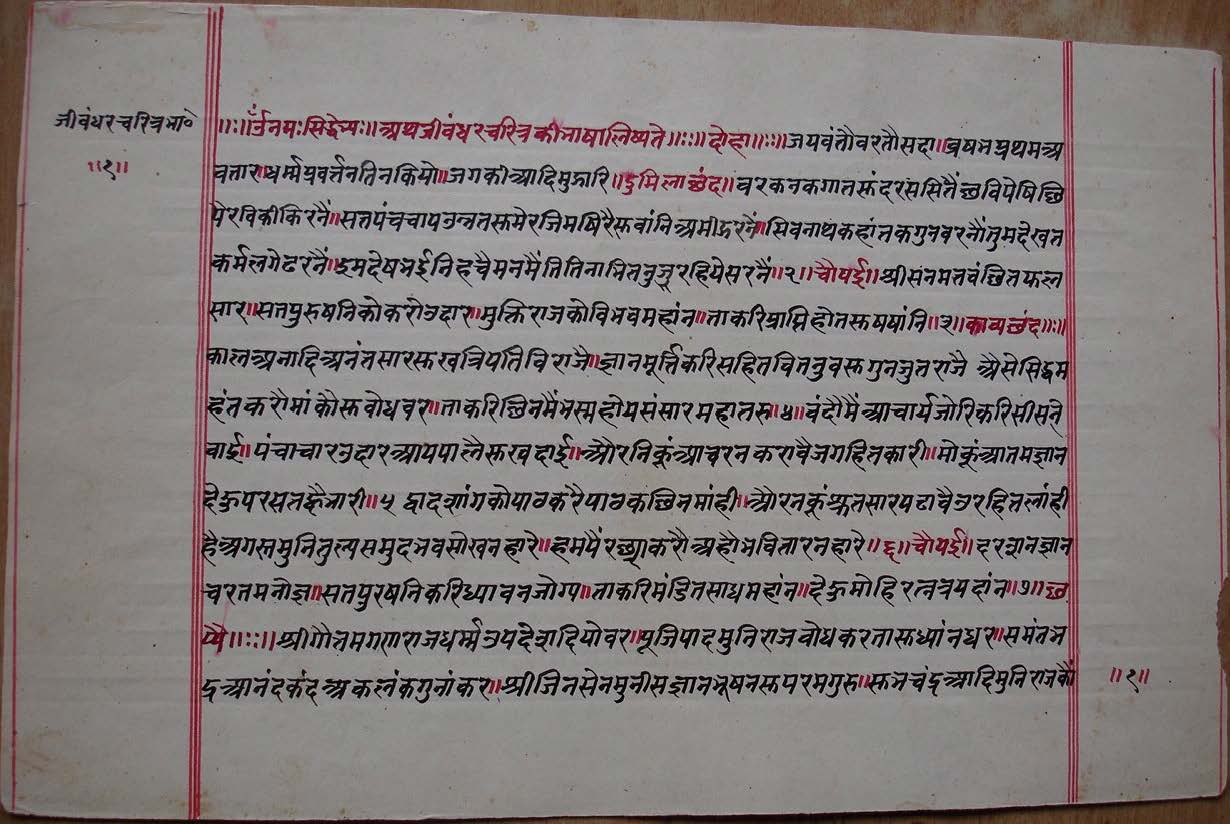 जीवंधरचरित्रभा०
॥१॥
॥ः॥ॐनमःसिद्धेभ्यः॥अथजीवंधरचरित्रकीभाषालिष्यते॥ः॥दोहा॥ः॥जयवंतौवरतौसदा॥व्रषभप्रथमअ
वतार॥धर्म्मप्रवर्त्तनतिनकियो॥जगकीआदिमुझारि॥दुमिलाछंद॥वरकनकगातसुंदरससितैंछविपेषिछि
पेरविकीकिरनैं॥सतपंचचापउन्नतसुमेरजिमषिरैसुवांनिअमीझरनैं॥सिवनाथकहांतकगुनवरनौंतुमदेखत
कर्मलगेटरनैं॥इमदेषभईनिहचैमनमैंतितिनाभितनुजूरहियेसरनैं॥२॥चौपई॥श्रीसनमतवंछितफल
सार॥सतपुरुषनिकोकरोउदार॥मुक्तिराजकोविभवमहांन॥ताकरिप्राप्तिहोतसुषषांनि॥३॥काव्यछंद॥ः॥
कालअनादिअनंतसारसुखत्रिपतिविराजै॥ज्ञानमूर्त्तिकरिसहितवितनुवसुगुनजुतराजै अैसेसिद्धम
हंतकरौमांकौसुवोधवर॥ताकरिछिनमैंभस्महोयसंसारमहातरु॥४॥वंदौमैंआचार्यजोरिकरिसीसन
वाई॥पंचाचारउदारआपपालैसुखदाई॥औरनिकूंआचरनकरावैजगहितकारी॥मोकूंआतमज्ञान
देऊपरसतह्वैभारी॥५ द्वादशांगकोपाठकरैपाठकछिनमांही॥औरनकूंश्रुतसारपढावैउरहितलांही
हैअगस्तमुनितुल्यसमुदभवसोखनहारे॥हमपैंरछ्याकरौअहोभवितारनहारे॥६॥चौपई॥दरशनज्ञान
चरतमनोज्ञ॥सतपुरषनिकरिध्यावनजोग्य॥ताकरिमंडितसाधमहांन॥देऊमोहिरत्नत्रयदांन॥७॥छ
प्पै॥ः॥श्रीगौतमगणराजधर्म्मउपदेशदियोवर॥पूजिपादमुनिराजवोधकरतासुध्यांनधर॥समंतभ
द्रआनंदकंदअकलंकगुनांकर॥श्रीजिनसेनमुनीसज्ञानभूषनसुपरमगुरु॥सुभचंद्रआदिमुनिराजकौं
॥१॥